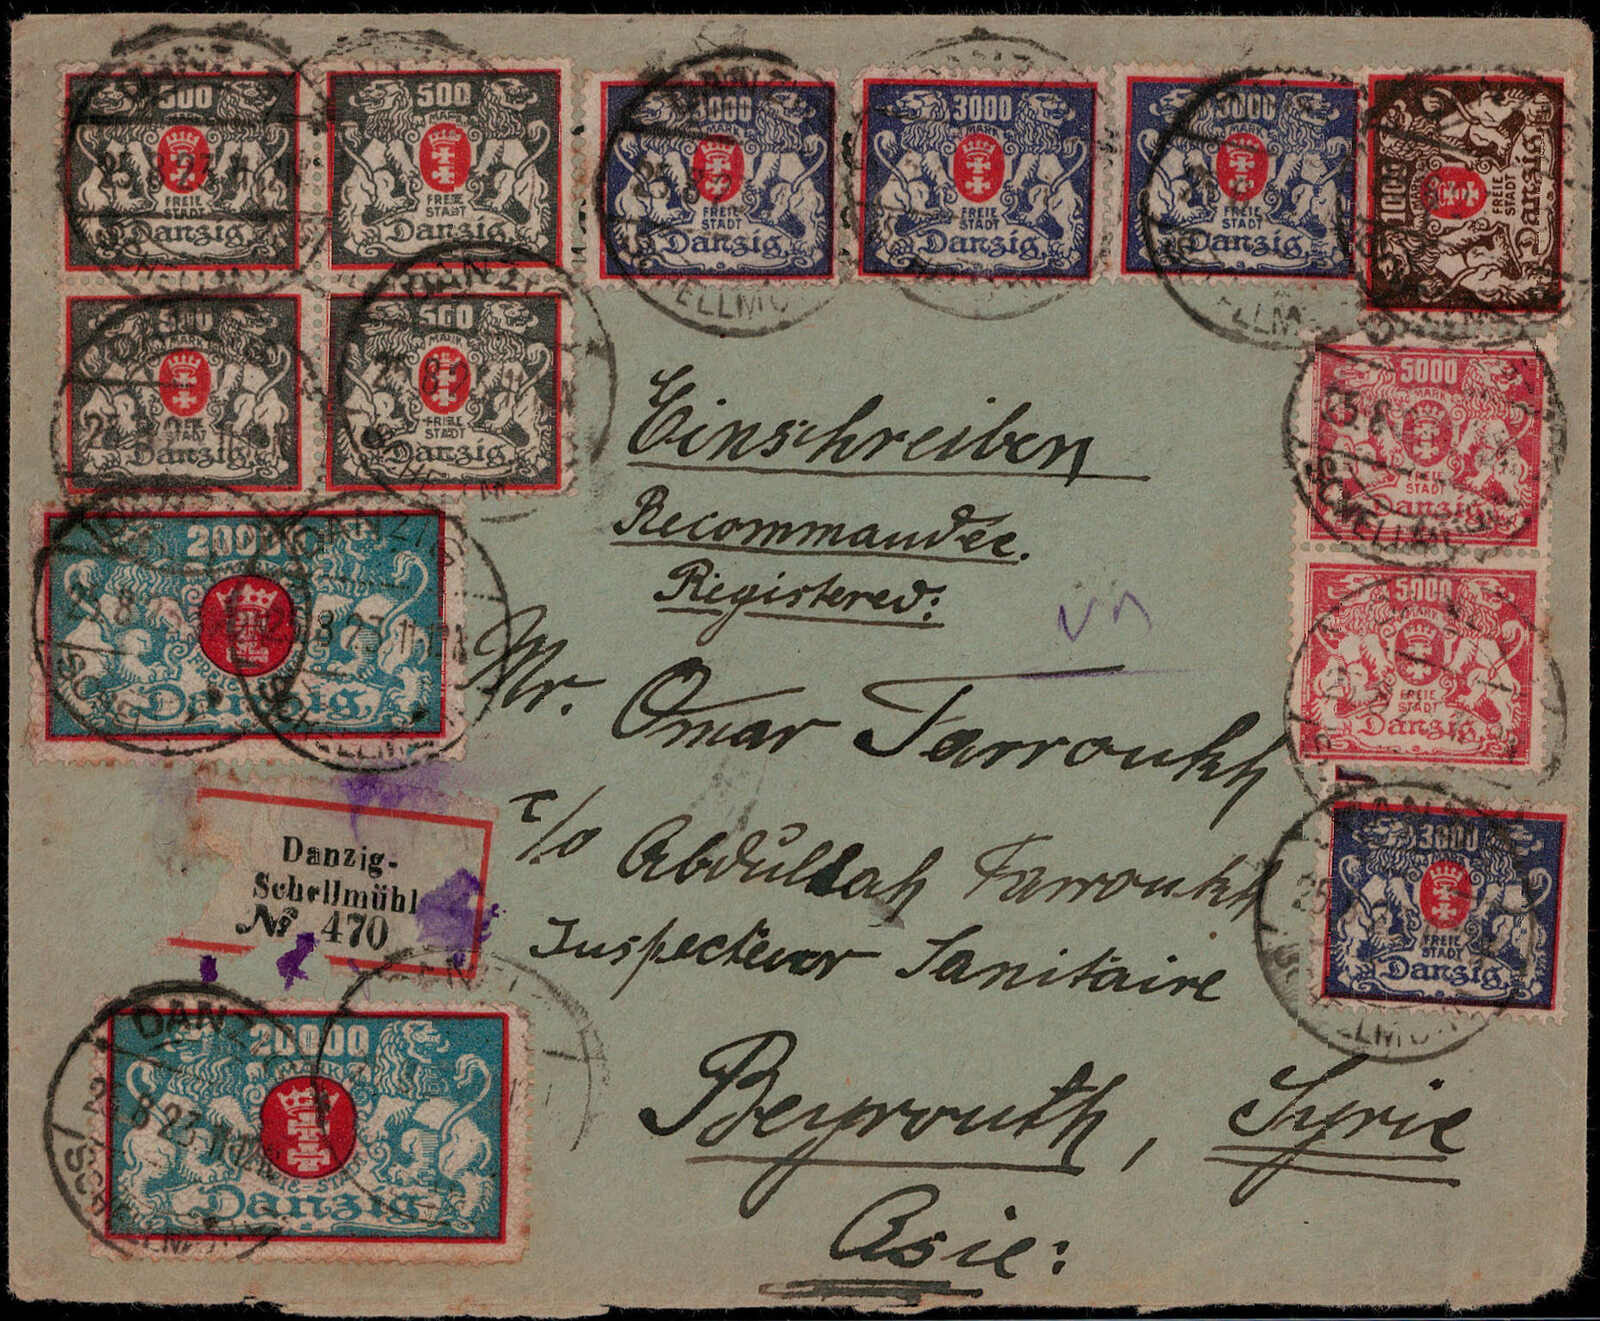 500 MARK FREIE STADT Danzig
500 MARK FREIE STADT Danzig
3000 MARK FREIE STADT Danzig
3000 MARK FREIE STADT Danzig
3000 MARK FREIE STADT Danzig
1000 MARK FREIE STADT Danzig
500 MARK FREIE STADT Danzig
500 MARK FREIE STADT Danzig
5000 MARK FREIE STADT Danzig
5000 MARK FREIE STADT Danzig
3000 FREIE STADT Danzig
20000 FREIE Danzig
20000 MARK FREIE STADT Danzig
DANZIG
25.8.23.11
SCHELLMÜHL
Einschreiben
Recommandee.
Registered:
Mr. Omar Farroukh
c/o Abdullah Farroukh
Inspecteur Sanitaire
Beyrouth, Syrie
Asie:
Danzig-
Schellmühl
№ 470